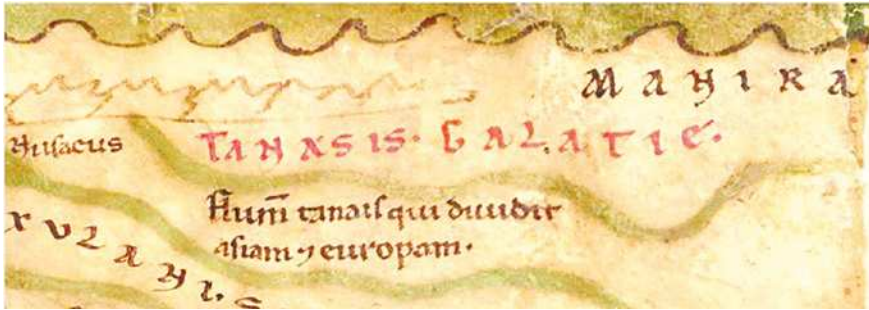 MANIRA
Nusacus
TANASIS. GALATIE.
Flum̄ tanais qui diuidit
asiam ⁊ europam.
XVLANI. S